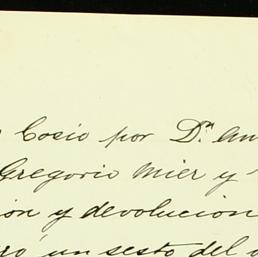 Cosio por D.ⁿ An
Gregorio Mier y
ion y devolucion
ro un sesto del